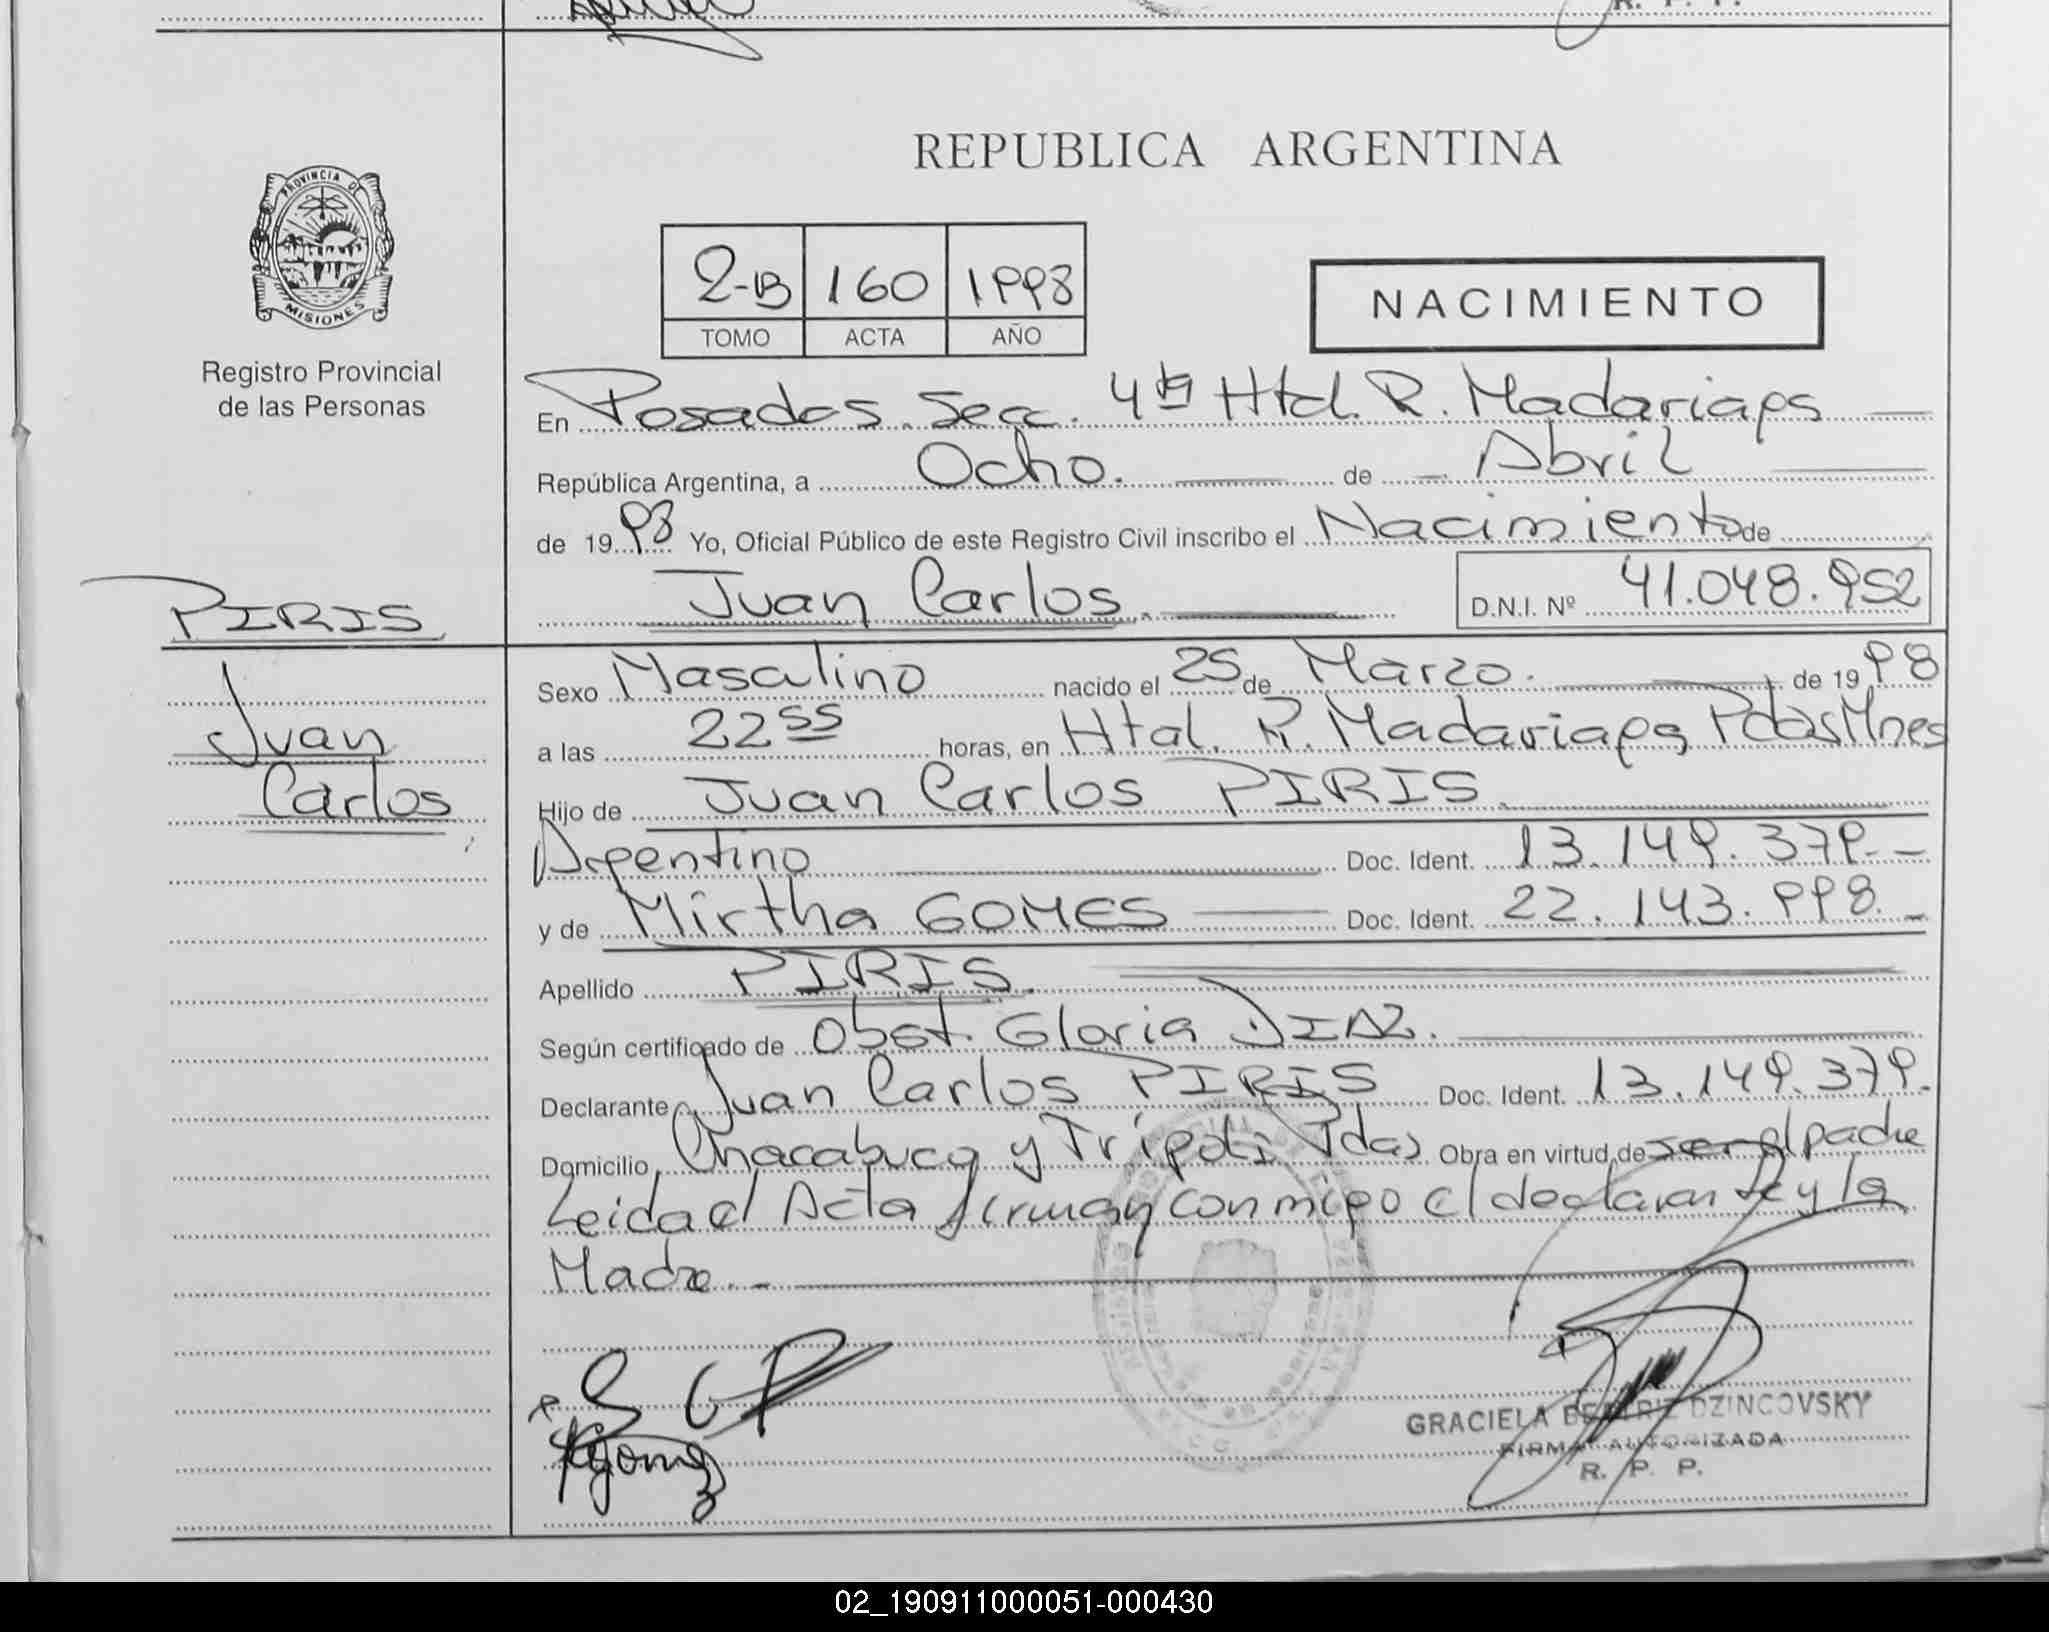 R. P. P.
PROVINCIA DE
MISIONES
Registro Provincial
de las Personas
REPUBLICA ARGENTINA
2-B 160 1998
TOMO ACTA AÑO
NACIMIENTO
En Posadas. Secc. 4ta Htal. R. Madariaga
República Argentina, a Ocho. de Abril
de 1998 Yo, Oficial Público de este Registro Civil inscribo el Nacimiento de
Juan Carlos. D.N.I. Nº 41.048.952
PIRIS
Juan
Carlos
Sexo Masculino nacido el 25 de Marzo. de 1998
a las 22 55 horas, en Htal. R. Madariaga, Pdas Mnes
Hijo de Juan Carlos PIRIS
Argentino Doc. Ident. 13.149.379.-
y de Mirtha GOMES Doc. Ident. 22.143.998.-
Apellido PIRIS.
Según certificado de Obst. Gloria DIAZ.
Declarante Juan Carlos PIRIS Doc. Ident. 13.149.379.
Domicilio Chacabuco y Trípoli Pdas Obra en virtud de ser el padre
Leida el Acta firman conmigo el declarante y la
Madre.-
Gomez
GRACIELA BEATRIZ DZINCOVSKY
FIRMA AUTORIZADA
R. P. P.
02_190911000051-000430